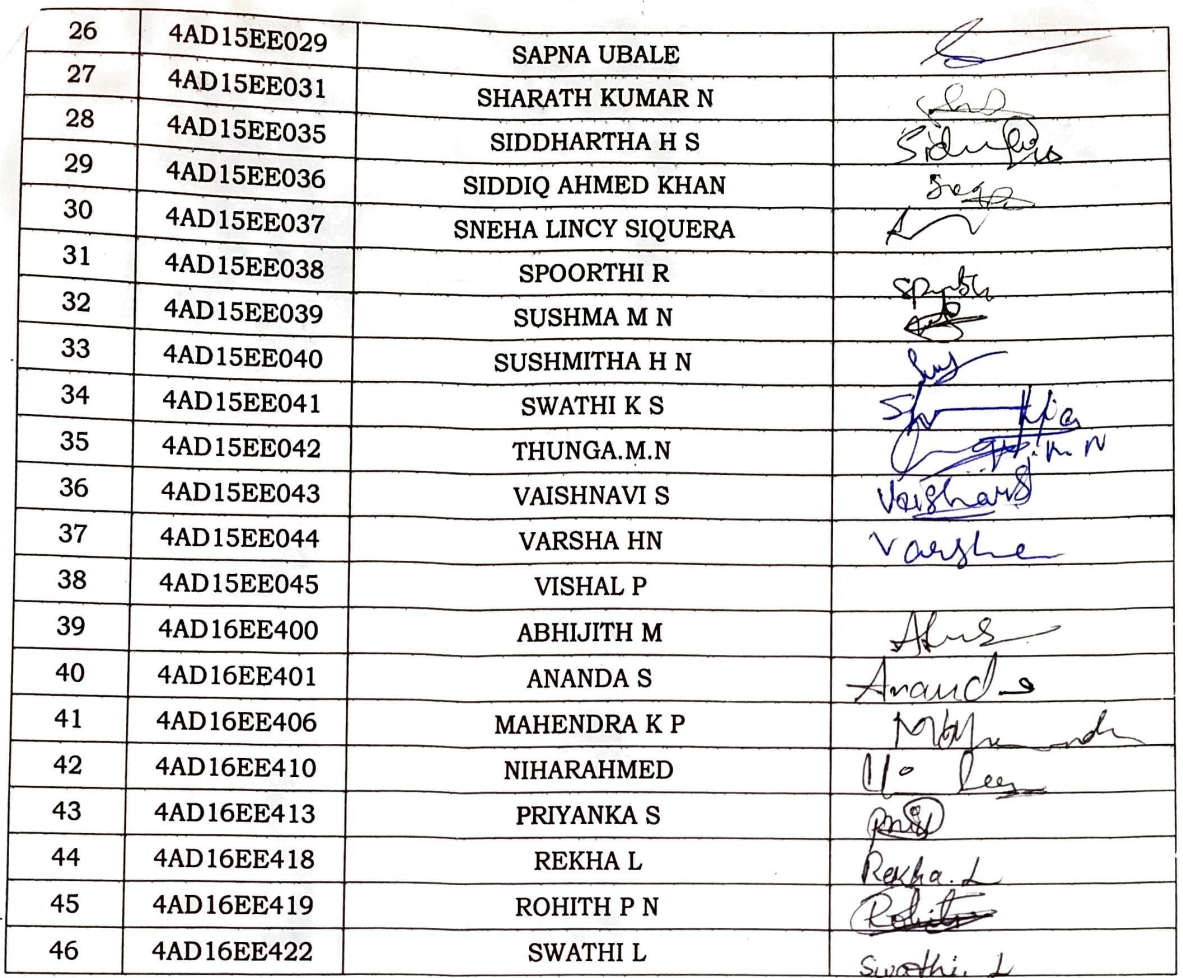 26 4AD15EE029 SAPNA UBALE
27 4AD15EE031 SHARATH KUMAR N
28 4AD15EE035 SIDDHARTHA H S
29 4AD15EE036 SIDDIQ AHMED KHAN
30 4AD15EE037 SNEHA LINCY SIQUERA
31 4AD15EE038 SPOORTHI R
32 4AD15EE039 SUSHMA M N
33 4AD15EE040 SUSHMITHA H N
34 4AD15EE041 SWATHI K S
35 4AD15EE042 THUNGA.M.N
36 4AD15EE043 VAISHNAVI S
37 4AD15EE044 VARSHA HN Varsha
38 4AD15EE045 VISHAL P
39 4AD16EE400 ABHIJITH M
40 4AD16EE401 ANANDA S Anand
41 4AD16EE406 MAHENDRA K P
42 4AD16EE410 NIHARAHMED
43 4AD16EE413 PRIYANKA S
44 4AD16EE418 REKHA L Rekha. L
45 4AD16EE419 ROHITH P N
46 4AD16EE422 SWATHI L Swathi. L